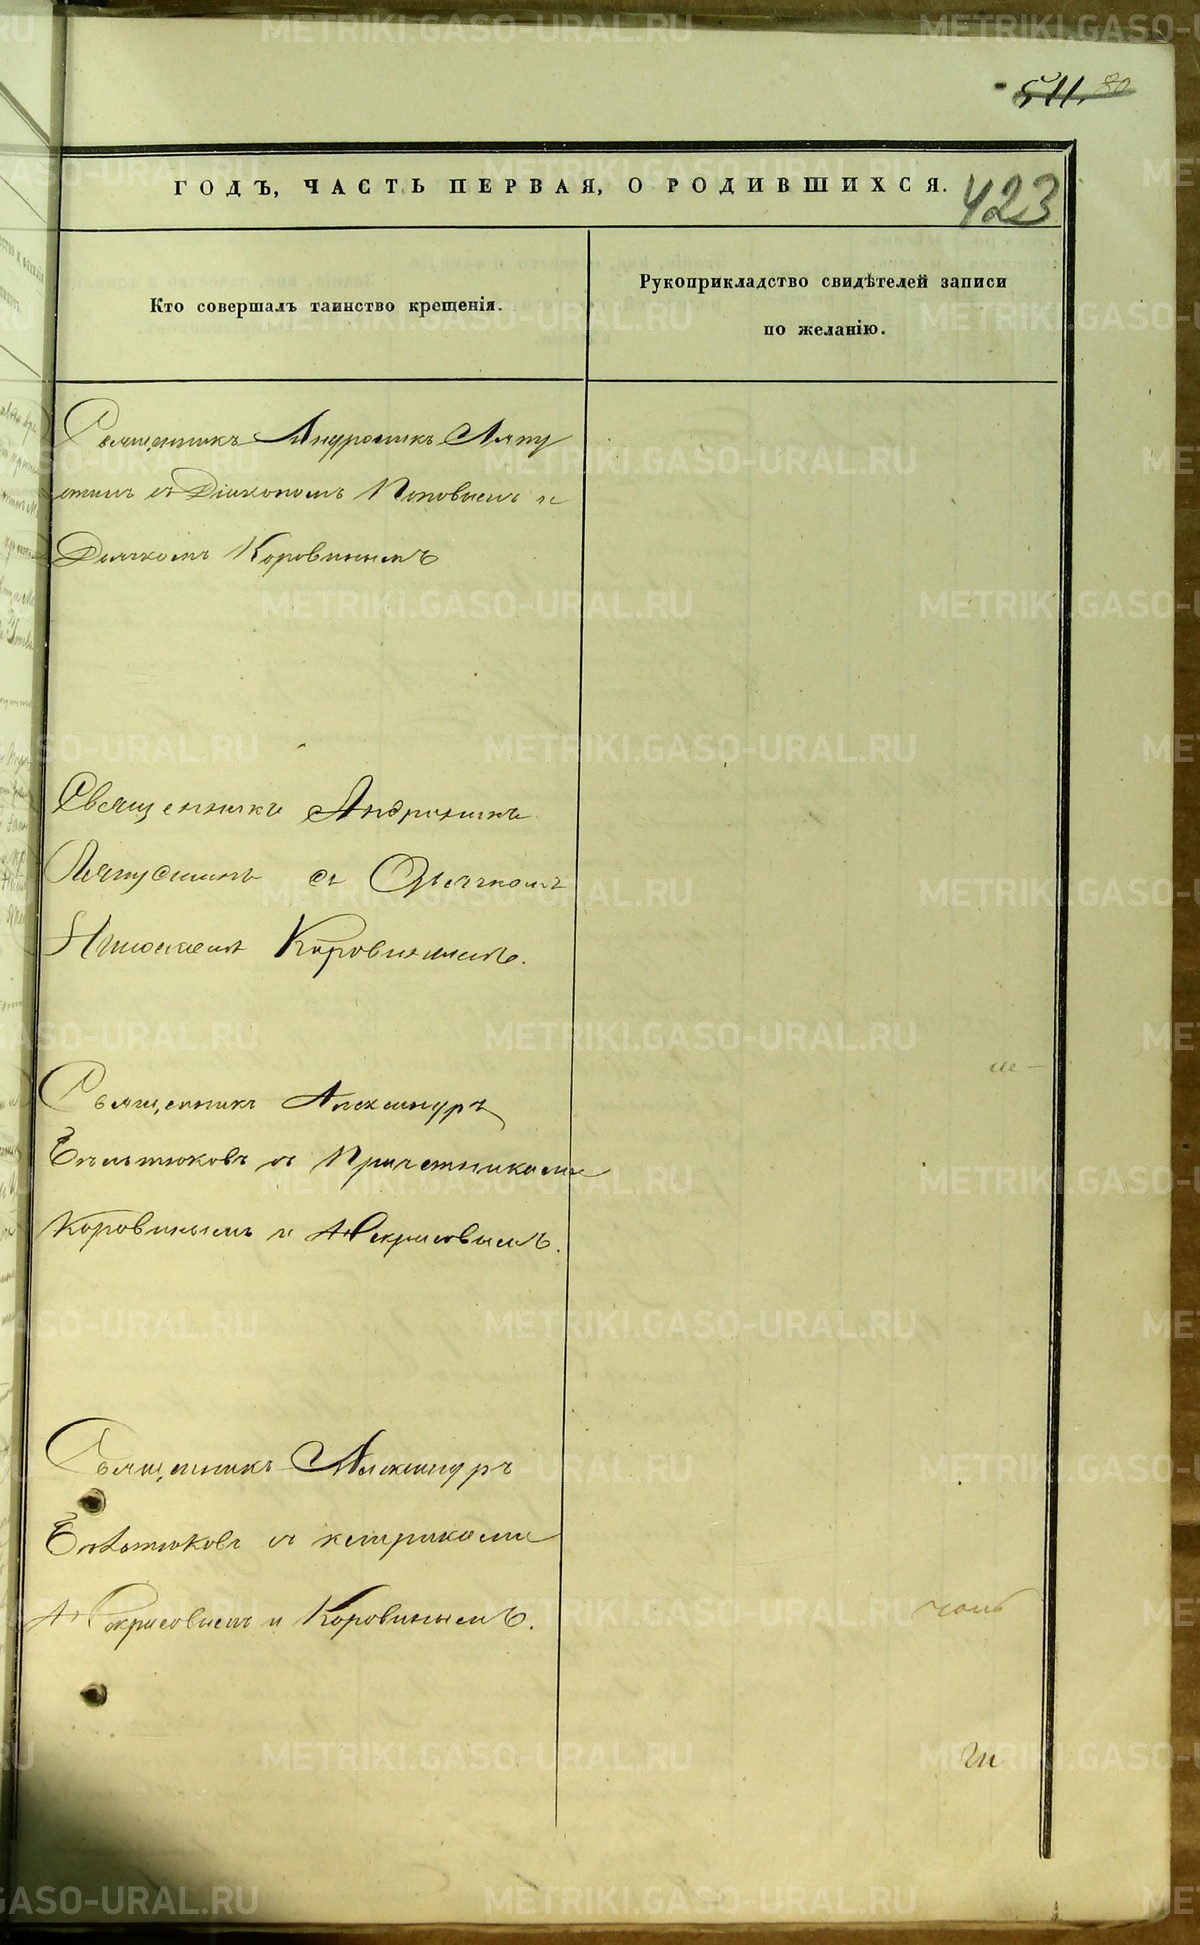 511. 80
ГОДЪ, ЧАСТЬ ПЕРВАЯ, О РОДИВШИХСЯ.
423
Кто совершалъ таинство крещенія.
Рукоприкладство свидѣтелей записи
по желанію.
Священникъ Андроникъ Ляпу
стинъ съ Діакономъ Поповымъ и
Дьячкомъ Коровинымъ
Священникъ Андроникъ
Ляпустинъ съ Дьячкомъ
Коровинымъ.
Священникъ Александръ
Бѣльтюковъ съ Причетниками
Коровинымъ и Некрасовымъ.
Священникъ Александръ
Бѣльтюковъ съ клириками
Некрасовымъ и Коровинымъ.
METRIKI.GASO-URAL.RU